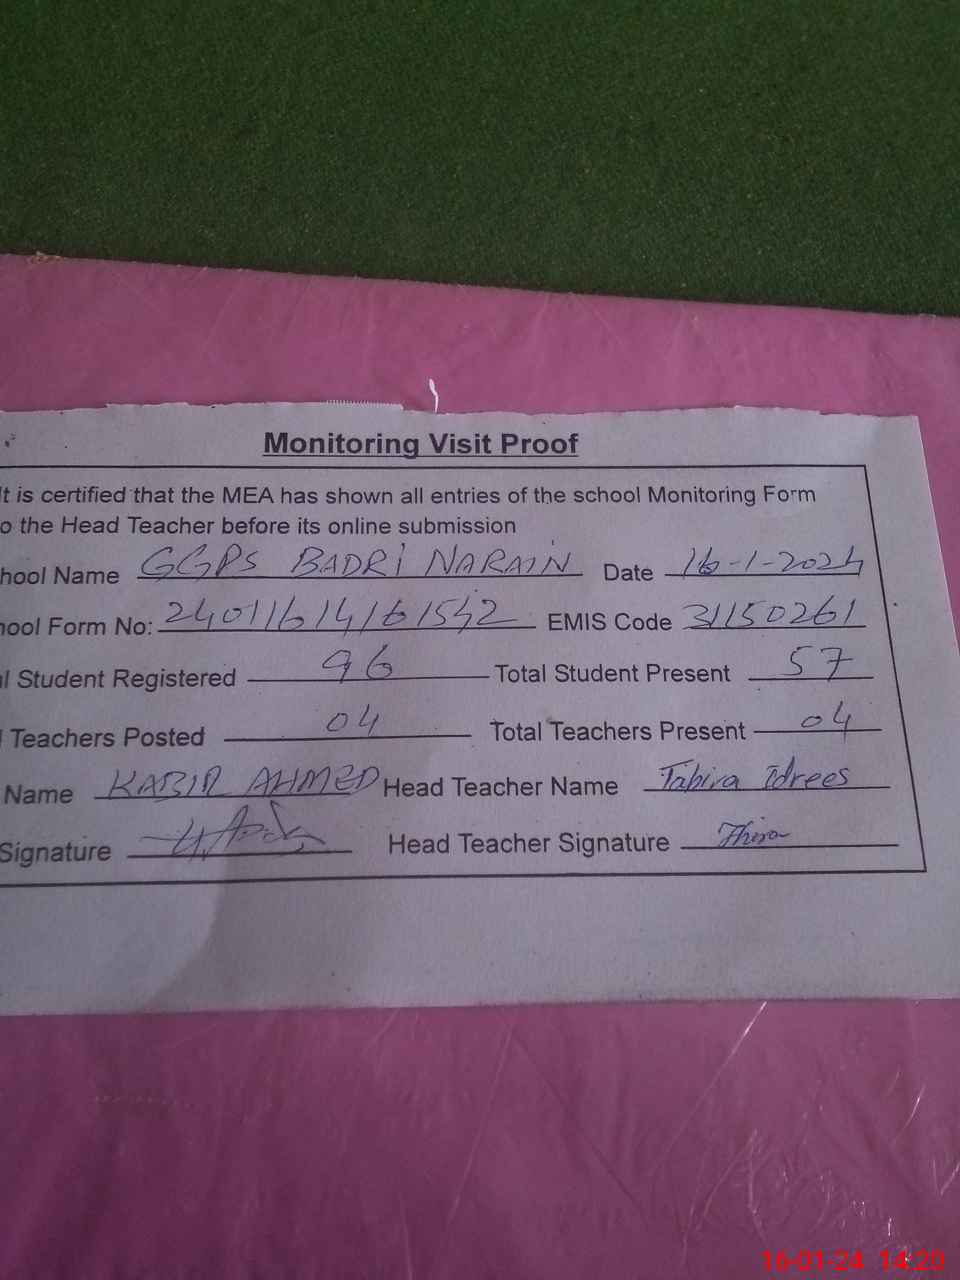 Monitoring Visit Proof
It is certified that the MEA has shown all entries of the school Monitoring Form
o the Head Teacher before its online submission
hool Name GGPS BADRI NARAIN Date 16-1-2024
hool Form No: 24011614161542 EMIS Code 31150261
l Student Registered 96 Total Student Present 57
l Teachers Posted 04 Total Teachers Present 04
Name KABIR AHMED Head Teacher Name Tabira Idrees
Signature Head Teacher Signature
16-01-24 14:20